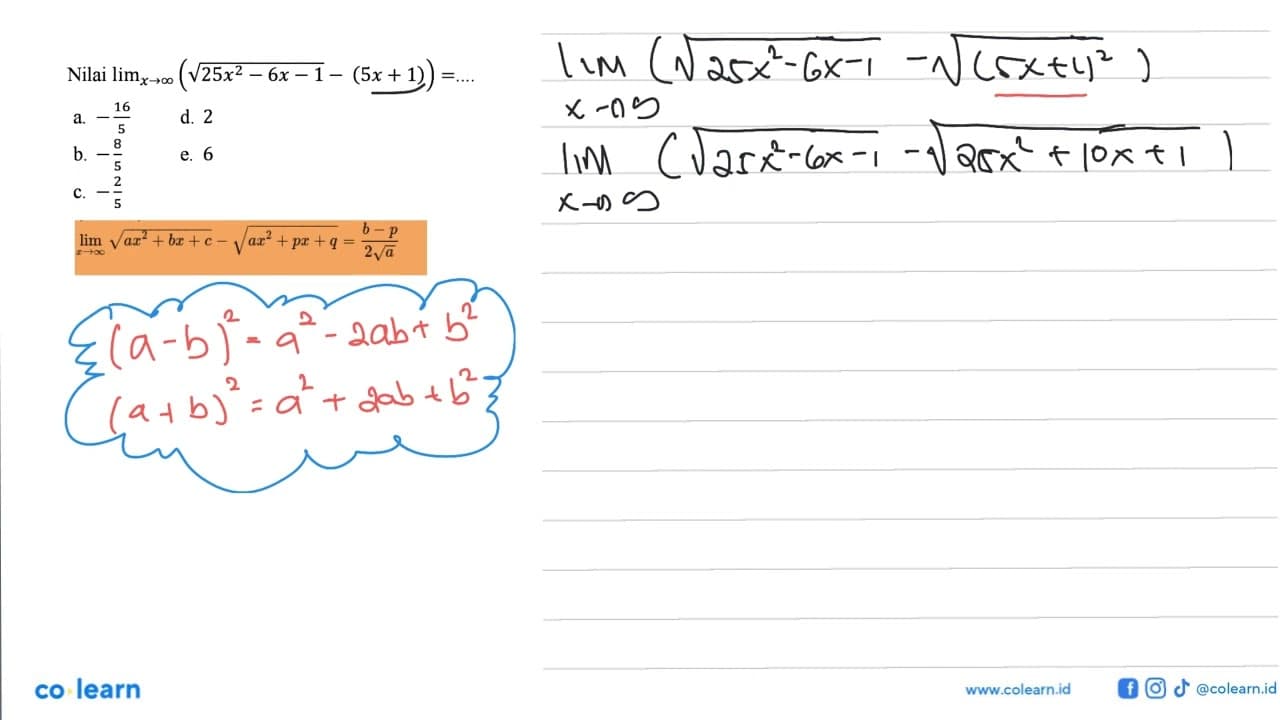 Nilai lim x→∞ (√(25x² − 6x − 1) − (5x + 1)) =....
a. −16/5 d. 2
b. −8/5 e. 6
c. −2/5
lim x→∞ √(ax² + bx + c) − √(ax² + px + q) = (b − p)/(2√a)
(a-b)² = a² - 2ab + b²
(a+b)² = a² + 2ab + b²
lim x→∞ (√(25x²-6x-1) - √((5x+1)²))
lim x→∞ (√(25x²-6x-1) - √(25x² + 10x + 1))
co learn
www.colearn.id @colearn.id